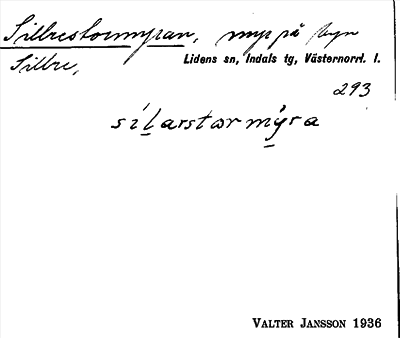 Sillrestormyran, myr på byn
Sillre, Lidens sn, Indals tg, Västernorrl. l.
293
sílarstormýra
VALTER JANSSON 1936